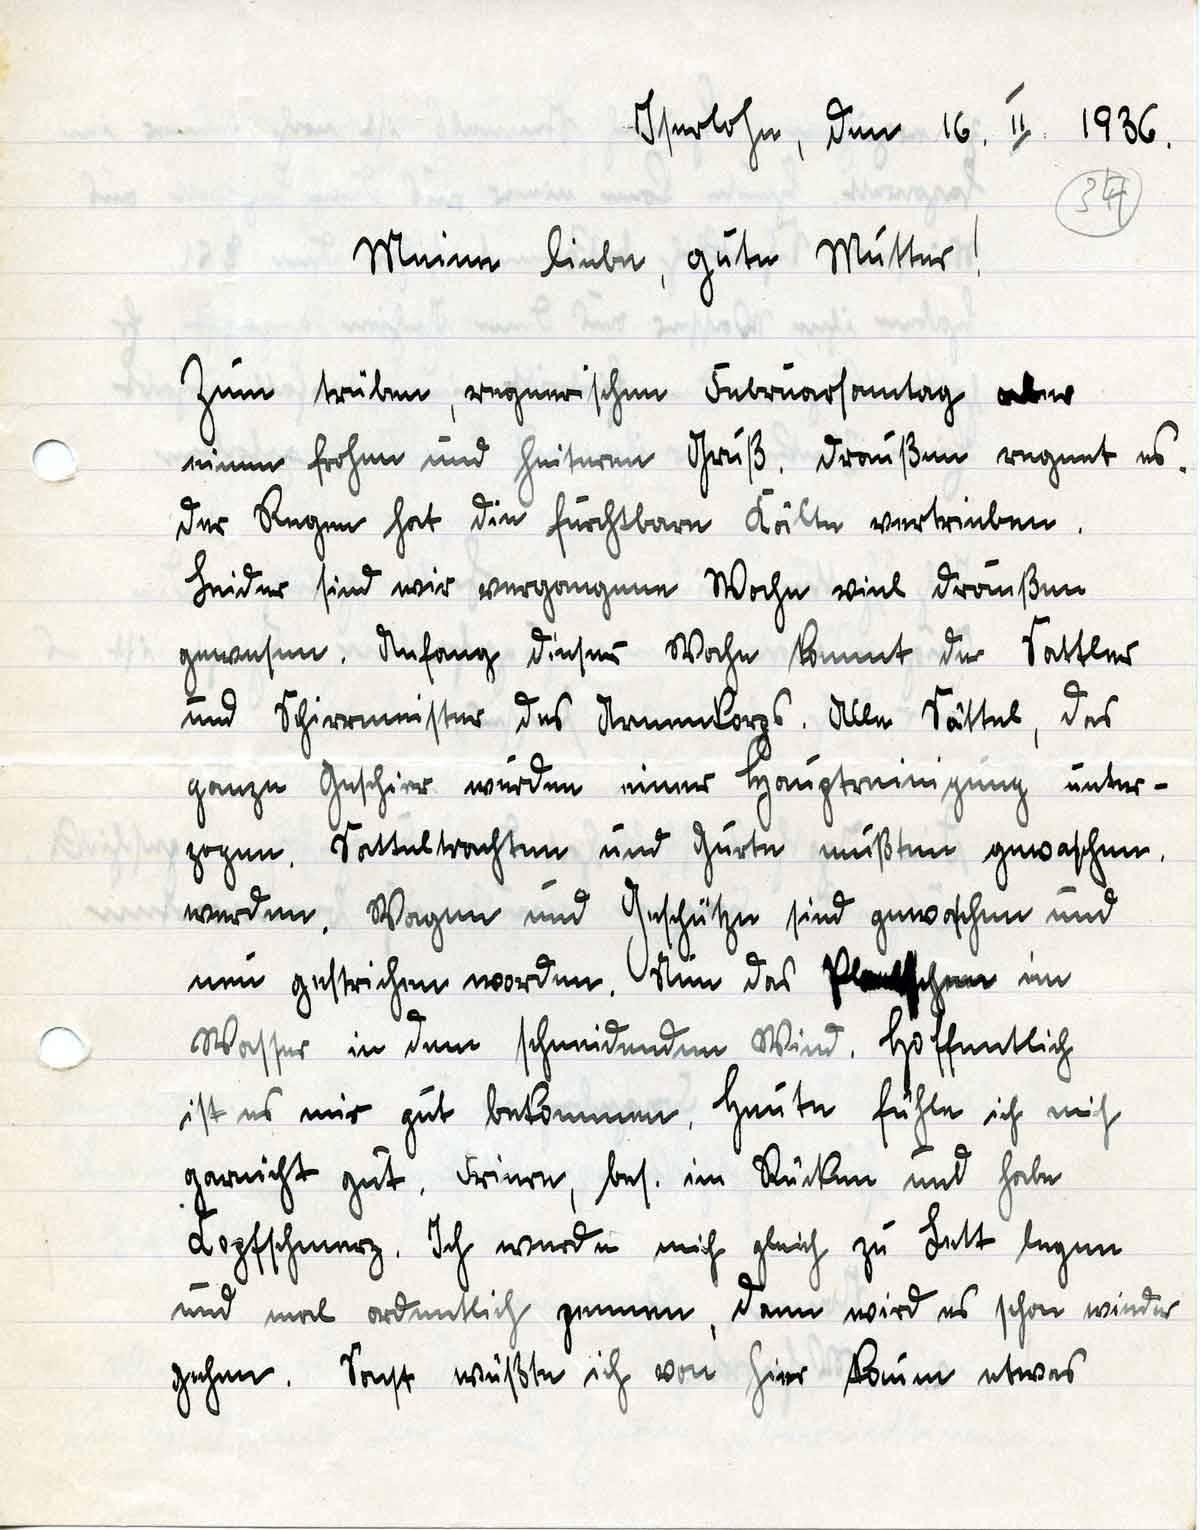 Iserlohn, den 16. II. 1936.
34
Meine liebe, gute Mutter!
Zum trüben, regnerischen Februarsonntag
einen frohen und heiteren Gruß. Draußen regnet es.
Der Regen hat die furchtbare Kälte vertrieben.
Leider sind wir vergangene Woche viel draußen
gewesen. Anfang dieser Woche kommt der Sattler
und Schirrmeister des Armeekorps. Alle Sättel, das
ganze Geschirr wurden einer Hauptreinigung unter-
zogen. Satteltrachten und Gurte mußten gewaschen
werden. Wagen und Geschütze sind gewaschen und
neu gestrichen worden. Nun das Plantschen im
Wasser in dem schneidenden Wind. Hoffentlich
ist es mir gut bekommen. Heute fühle ich mich
garnicht gut. Friere, bes. im Rücken und habe
Kopfschmerz. Ich werde mich gleich zu Bett legen
und mal ordentlich pennen, dann wird es schon wieder
gehen. Sonst wüßte ich von hier kaum etwas